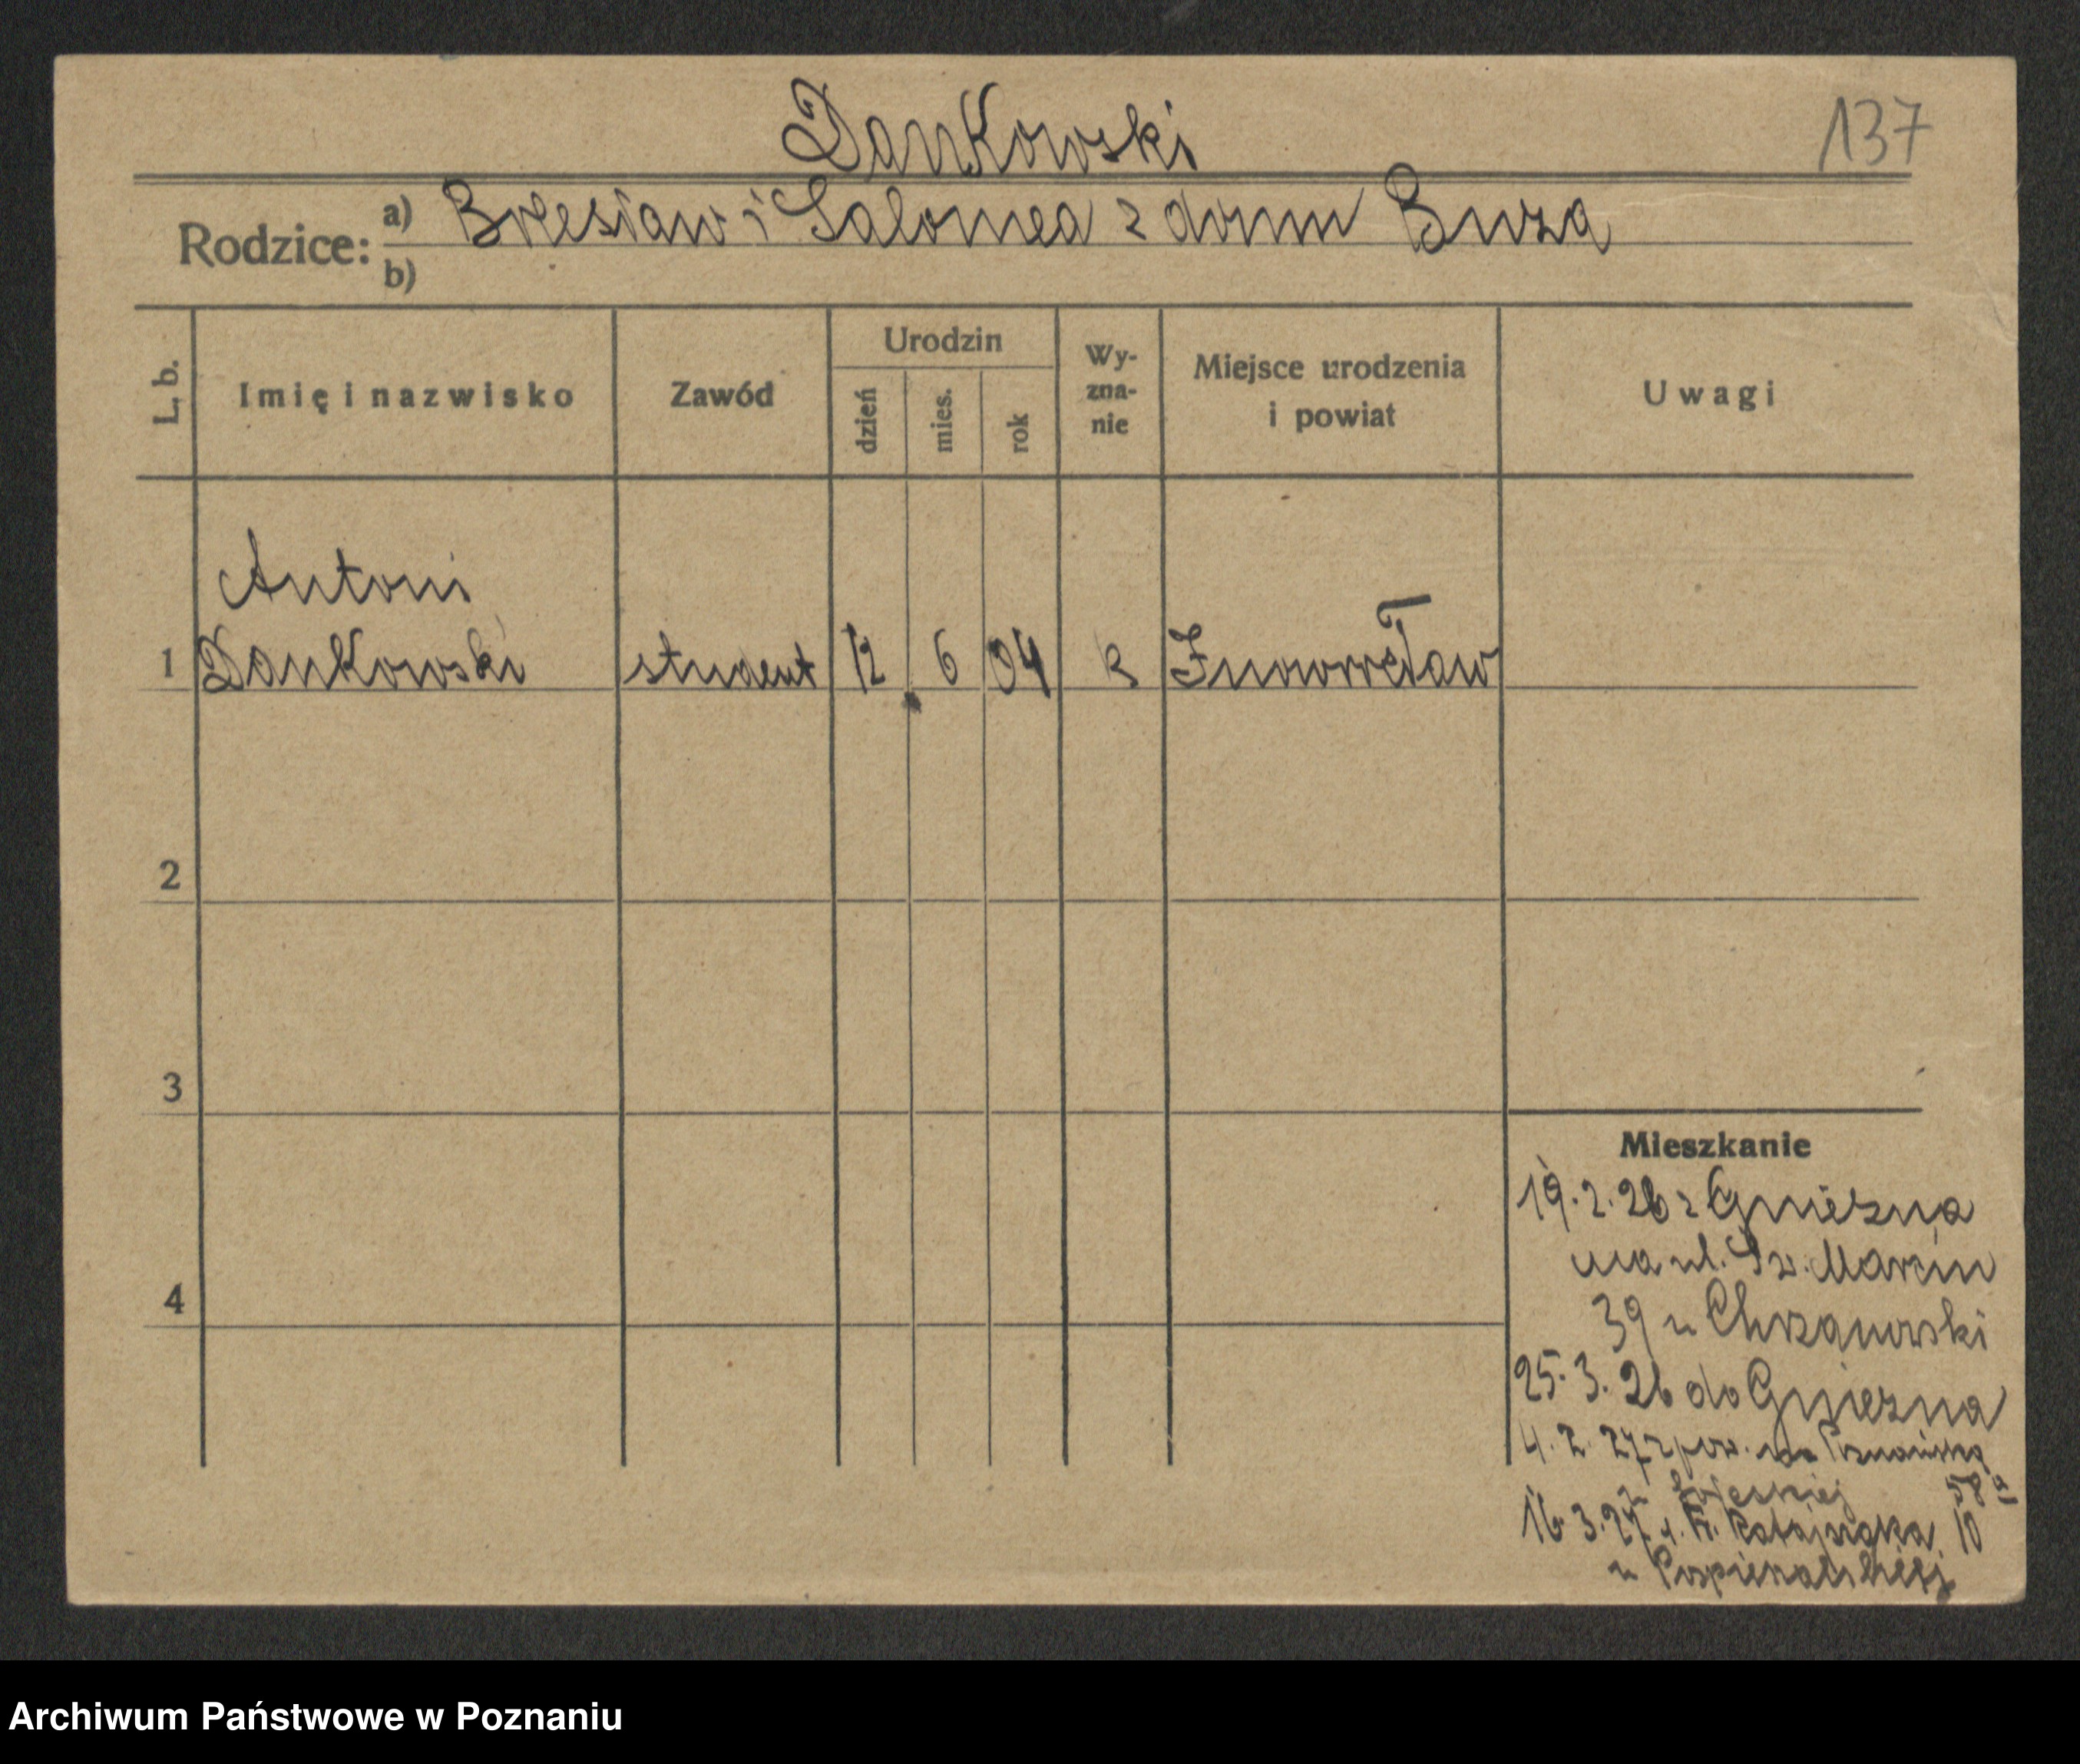 Dankowski
137
Rodzice: a) Bolesław i Salomea z domu Buza
b)
L. b. Imię i nazwisko Zawód Urodzin dzień mies. rok Wy-zna-nie Miejsce urodzenia i powiat Uwagi
Antoni
1 Dankowski student 12 6 04 Inowrocław
2
3
4
Mieszkanie
19.2.26 z Gniezna
na ul. Św. Marcin
39 u Chrzanowski
25.3.26 do Gniezna
4.2.27 z pow. na Poznańską
58a
16.3.27 Fr. Ratajczaka 10
u Pospieralskiej
Archiwum Państwowe w Poznaniu